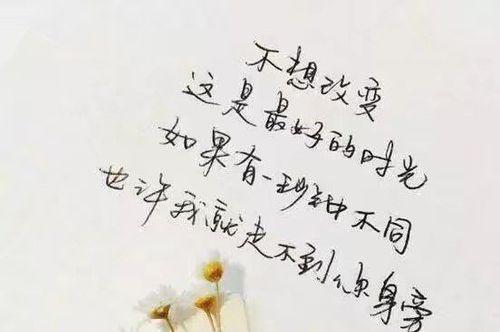 不想改变
这是最好的时光
如果有一秒钟不同
也许我就走不到你身旁